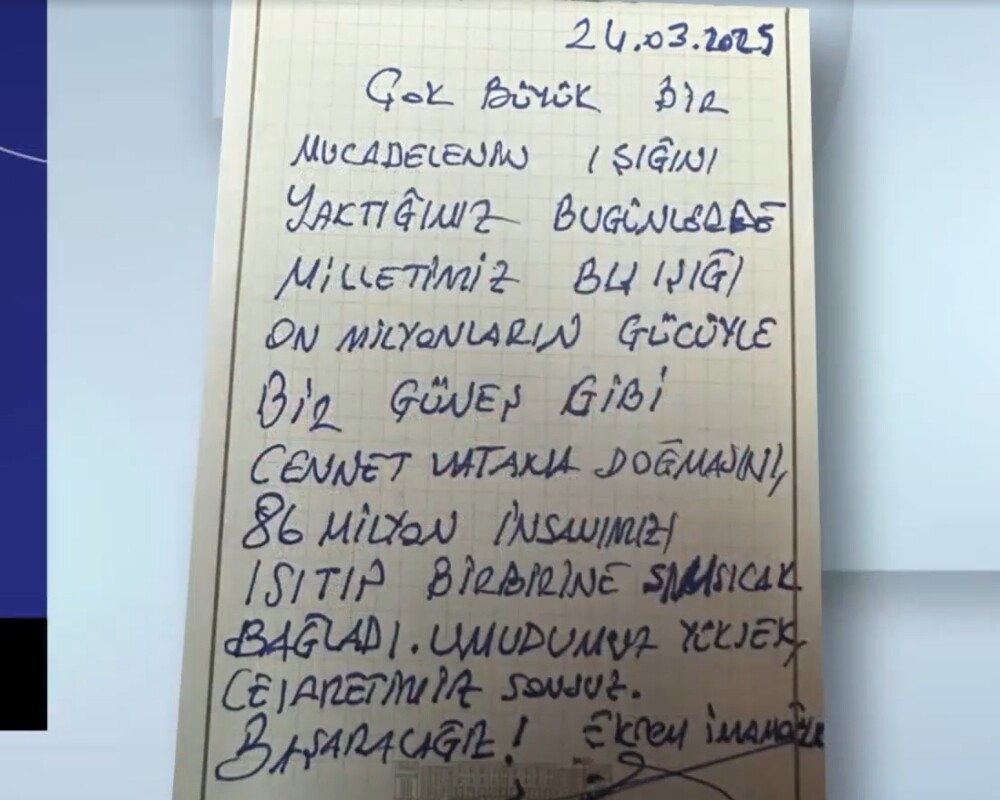 24.03.2025
ÇOK BÜYÜK BİR
MUCADELENİN IŞIĞINI
YAKTIĞIMIZ BUGÜNLERDE
MİLLETİMİZ BU IŞIĞI
ON MİLYONLARIN GÜCÜYLE
BİR GÜNEŞ GİBİ
CENNET VATANA DOĞMASINI,
86 MİLYON İNSANIMIZI
ISITIP BİRBİRİNE SIMSICAK
BAĞLADI. UMUDUMUZ YÜKSEK,
CESARETİMİZ SONSUZ.
BAŞARACAĞIZ! EKREM İMAMOĞLU